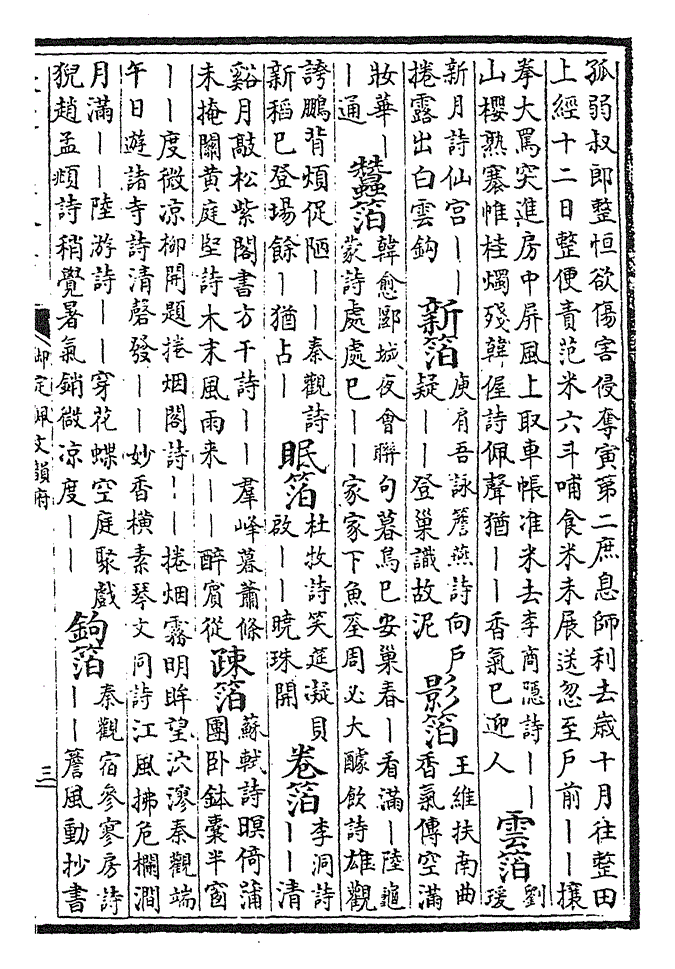 孤弱叔郎整恒欲傷害侵奪寅第二庶息師利去歲十月往整田
上經十二日整便責范米六斗哺食米未展送忽至戶前——攘
拳大罵突進房中屏風上取車帳准米去李商隱詩——
山櫻熟寨惟桂燭殘韓偓詩佩聲猶——香氣已迎人
雲箔
劉
瑗
新月詩仙宮——
捲露出白雲鈎
新箔
庾肩吾詠簷燕詩向戶
疑——登巢識故泥
影箔
王維扶南曲
香氣傳空滿
妝華—
—通
蠶箔
韓愈郾城夜會聯句暮鳥已安巢春—看滿—陸龜
蒙詩處處已——家家下魚筌周必大醵飲詩雄觀
誇鵬背煩促陋——秦觀詩
新稻已登場餘—猶占—
眠箔
杜牧詩笑筵凝貝
啟——曉珠開
卷箔
李洞詩
——清
谿月敲松紫閣書方干詩——羣峰暮蕭條
未掩關黃庭堅詩木末風雨來——醉賓從
疎箔
蘇軾詩暝倚蒲
團卧鉢囊半窗
——度微凉柳開題捲烟閣詩——捲烟霧明眸望泬漻秦觀端
午日遊諸寺詩清磬發——妙香橫素琴文同詩江風拂危欄澗
月滿——陸游詩——穿花蝶空庭聚戲
猊趙孟頫詩稍覺暑氣銷微凉度——
鉤箔
秦觀宿參寥房詩
——簷風動抄書
御定佩文韻府
三